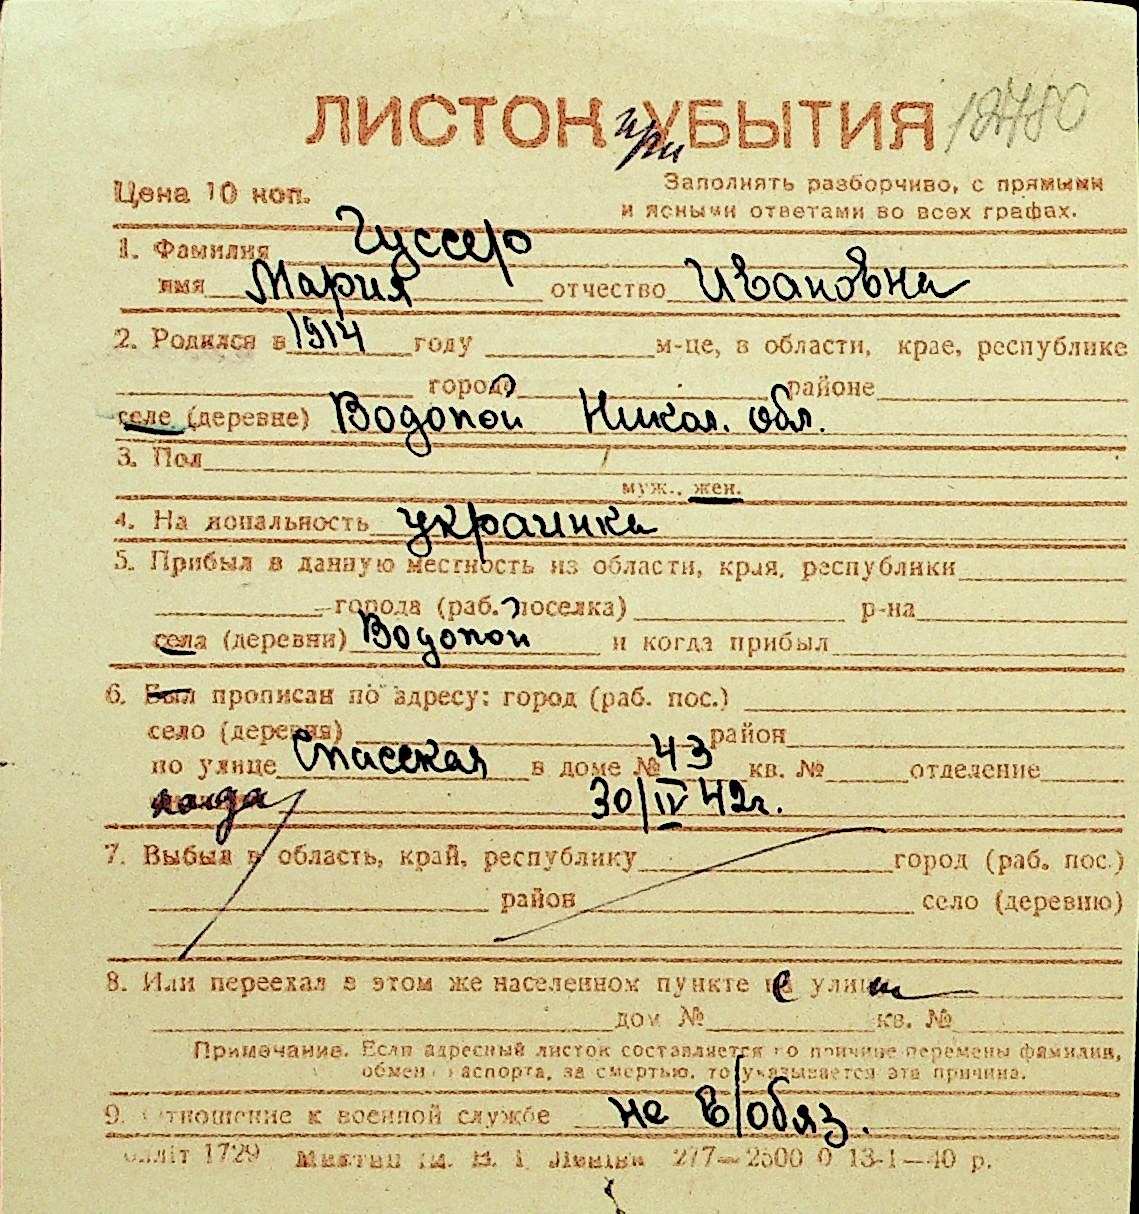 ЛИСТОК при УБЫТИЯ 12780
Цена 10 коп.
Заполнять разборчиво, с прямыми
и ясными ответами во всех графах.
1. Фамилия Гуссер
имя Мария отчество Ивановна
2. Родился в 1914 году м-це, в области, крае, республике
городе районе
селе (деревне) Водопой Никол. обл.
3. Пол
муж., жен.
4. На иональность украинка
5. Прибыл в данную местность из области, края, республики
города (раб. поселка) р-на
села (деревни) Водопой и когда прибыл
6. Был прописан по адресу: город (раб. пос.)
село (деревня) район
по улице Спасская в доме № 43 кв. № отделение
когда 30/IV 42г.
7. Выбыл в область, край, республику город (раб. пос.)
район село (деревню)
8. Или переехал в этом же населенном пункте с улицы
дом № кв. №
Примечание. Если адресный листок составляется по причине перемены фамилии,
обмен паспорта, за смертью, то указывается эта причина.
9. Отношение к военной службе не в/обяз.
облліт 1729 ім. В. І. Леніна 277—2500 0 13-1—40 р.